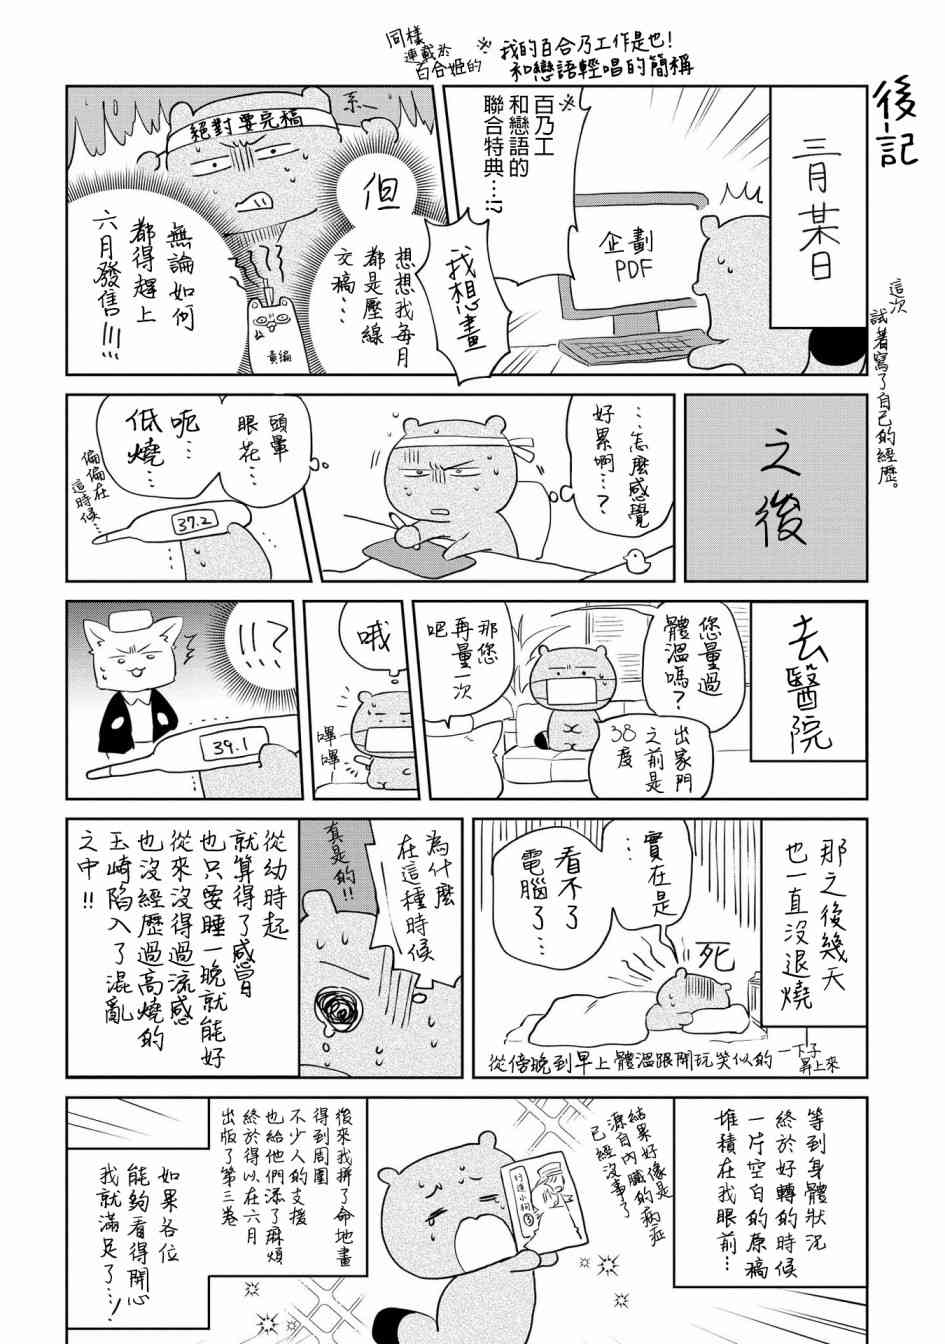 後記
這次
試著寫了自己的經歷。
三月某日
企劃
PDF
※我的百合乃工作是也！
和戀語輕唱的簡稱
同樣
連載於
百合姬的
※百乃工
和戀語的
聯合特典…!?
我想畫
但
想想我每月
都是壓線
交稿…
絕對要完稿
責編
無論如何
都得趕上
六月發售!!!
之後
…怎麼感覺
好累啊…?
頭暈
眼花…
呃…
低燒…
偏偏在
這時候…
37.2
去醫院
您量過
體溫嗎?
出家門
之前是
38度
那您
再量一次
吧
哦
嗶嗶
!!?
39.1
那之後幾天
也一直沒退燒
從傍晚到早上體溫跟開玩笑似的一下子
昇上來
死
實在是
…
看不了
電腦了…
為什麼
在這種時候
真是的!!
從幼時起
就算得了感冒
也只要睡一晚就能好
從來沒得過流感
也沒經歷過高燒的
玉崎陷入了混亂
之中!!
等到身體狀況
終於好轉的時候
一片空白的原稿
堆積在我眼前…
結果好像是
源自內臟的病症
已經沒事了
後來我拼了命地畫
得到周圍
不少人的支援
也給他們添了麻煩
終於得以在六月
出版了第三卷
如果各位
能夠看得開心
我就滿足了…!